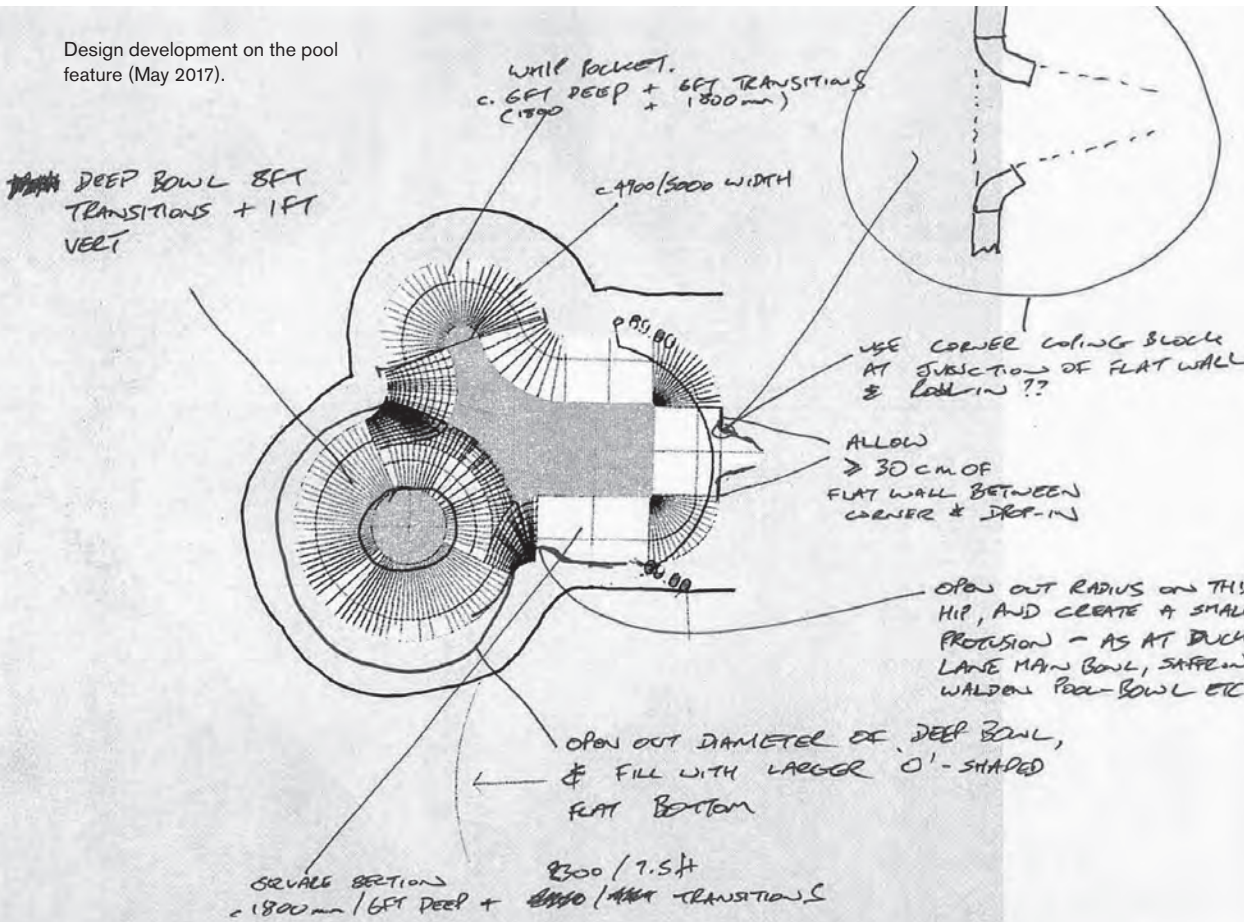 Design development on the pool
feature (May 2017).
WHIP POCKET.
c. 6FT DEEP + 6FT TRANSITIONS
(1800 + 1800mm)
DEEP BOWL 8FT
TRANSITIONS + 1FT
VERT
c4900/5000 WIDTH
USE CORNER COPING BLOCK
AT JUNCTION OF FLAT WALL
& ROLL-IN ??
ALLOW
≥ 30cm OF
FLAT WALL BETWEEN
CORNER & DROP-IN
OPEN OUT RADIUS ON THIS
HIP, AND CREATE A SMALL
PROTUSION - AS AT DUCK
LANE MAIN BOWL, SAFFRON
WALDEN POOL-BOWL ETC
OPEN OUT DIAMETER OF DEEP BOWL,
& FILL WITH LARGER 'O'-SHAPED
FLAT BOTTOM
SQUARE SECTION 2300 / 7.5ft
c1800mm/6FT DEEP + TRANSITIONS